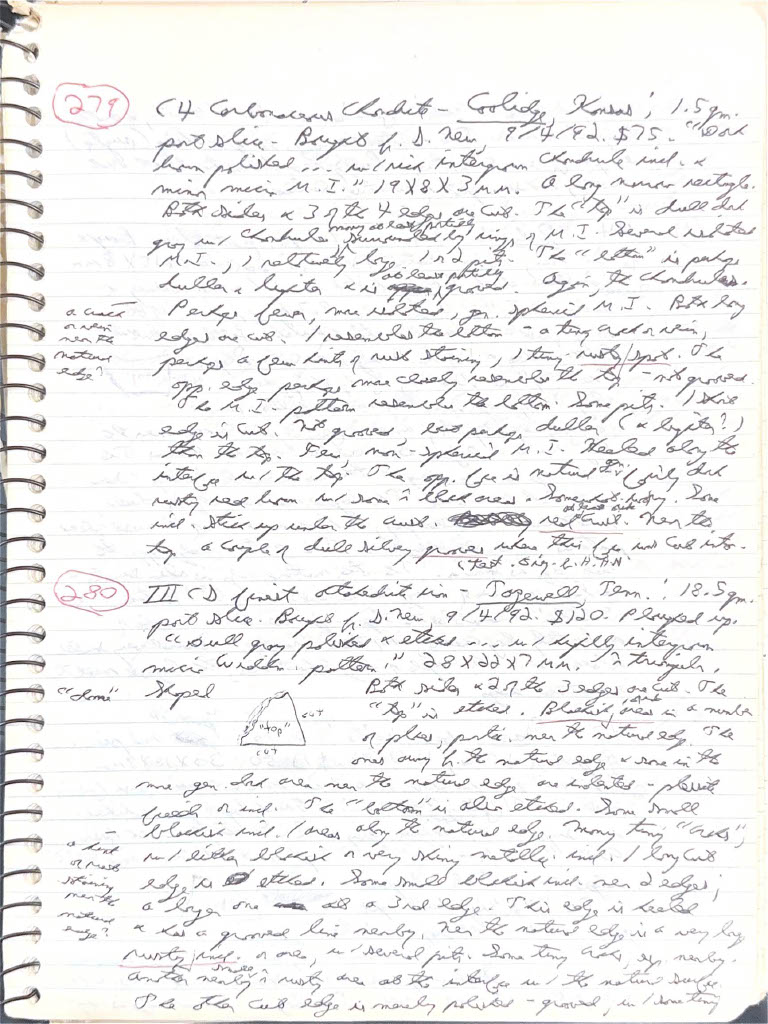 279 C4 Carbonaceous Chondrite - Coolidge, Kansas; 1.5 gm.
part slice. Bought f. D. New, 9/4/92. $75. "Dark
brown polished ... w/ rich intergrown chondrule incl. &
minor micro M.I." 19 X 8 X 3 M.M. A long narrow rectangle.
Both sides & 3 of the 4 edges are cut. The "top" is dull dark
gray w/ chondrules, many at least partially surrounded by rings of M.I. Several isolated
M.I., 1 relatively large, 1 or 2 pits. The "bottom" is perhaps
duller & lighter & is at least partially grooved. Again, the chondrules.
Perhaps fewer, more isolated, gen. spherical M.I. Both long
a crack
or vein
near the
natural
edge?
edges are cut. 1 resembles the bottom - a tiny crack or vein,
perhaps a few hints of rust staining, 1 tiny rusty spot. The
opp. edge perhaps more closely resembles the top - not grooved.
The M.I. pattern resembles the bottom. Some pits. 1 short
edge is cut. Not grooved, but perhaps duller (& lighter?)
than the top. Few, non-spherical M.I. Healed along the
interface w/ the top. The opp. face is natural fairly dark
rusty red brown w/ some blackish areas. Somewhat rusty. Some
incl. stick up under the crust. real crust. Near the
top a couple of dull silvery grooves where this face was cut into.
280 III CD finest octahedrite iron - Tazewell, Tenn.; 18.5 gm.
part slice. Bought f. D. New, 9/4/92. $120. Plowed up.
"Dull gray polished & etched ... w/ highly intergrown
micro Widdm. pattern." 28 X 22 X 7 M.M. triangular,
"dome" shaped
Both sides & 2 of the 3 edges are cut. The
"top" is etched. Blackish areas in a number
of places, partic. near the natural edge. The
"top" cut
cut
ones away f. the natural edge & some in the
more gen. dark area near the natural edge are isolated -
or incl. The "bottom" is also etched. Some small
blackish incl. / areas along the natural edge. Many tiny "cracks",
w/ either blackish or very shiny metallic incl. 1 long cut
a hint
of rust
staining
near the
natural
edge?
edge is etched. Some small blackish incl. near 2 edges;
a larger one at a 3rd edge. This edge is healed
& has a grooved line nearby. Near the natural edge is a very large
rusty incl. or area, w/ several pits. Some tiny cracks, esp. nearby.
Another nearby smaller rusty area at the interface w/ the natural surface.
The other cut edge is merely polished - grooved, w/ some tiny